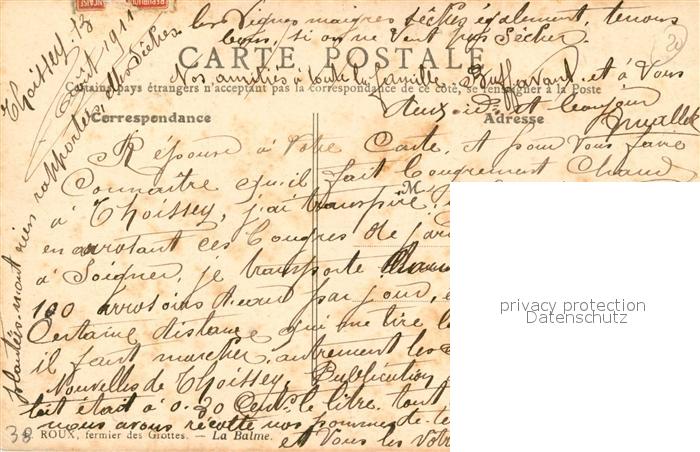 Thoissey 13
Août 1911
les vignes maigres sèches également, tenons
bons, si on ne veut pas sécher.
CARTE POSTALE
Certains pays étrangers n'acceptent pas la correspondance de ce côté, se renseigner à la Poste
Nos amitiés à toute la famille et à Vous
deux
Correspondance
Adresse
Réponse à Votre Carte, et pour Vous faire
Connaître qu'il fait bougrement Chaud
M
à Thoissey, j'ai transpiré
en arrosant ces bougres de
à Soigner, je transporte
100 arrosoirs d'eau par jour,
Certaine distance qui me tire
il faut marcher, autrement les
Nouvelles de Thoissey, Publication
lait était à 0.30 Cent. le litre, tout
nous avons récolté nos pommes de te
et Vous les Vôtr
plantés n'ont rien rapporter, elles sèches
38 ROUX, fermier des Grottes. - La Balme.
20
privacy protection
Datenschutz